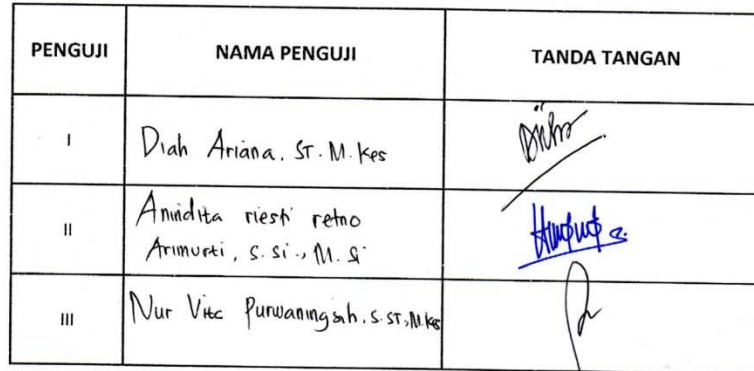 PENGUJI NAMA PENGUJI TANDA TANGAN
I Diah Ariana, ST. M. Kes
II Anindita riesti retno
Arimurti, S. Si., M. Si
III Nur Vita Purwaningsih, S. ST., M. Kes